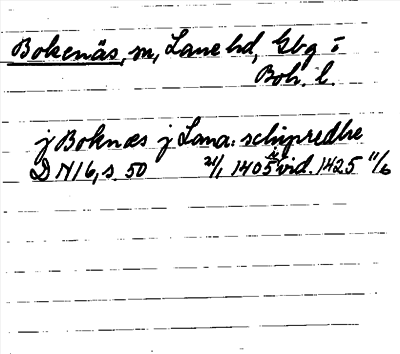 Bokenäs, sn, Lane hd, Gbg o
Boh. l.
j Boknæs j Lana. schipredhe
DN 16, s. 50 21/1 1405 i vid. 1425 11/6